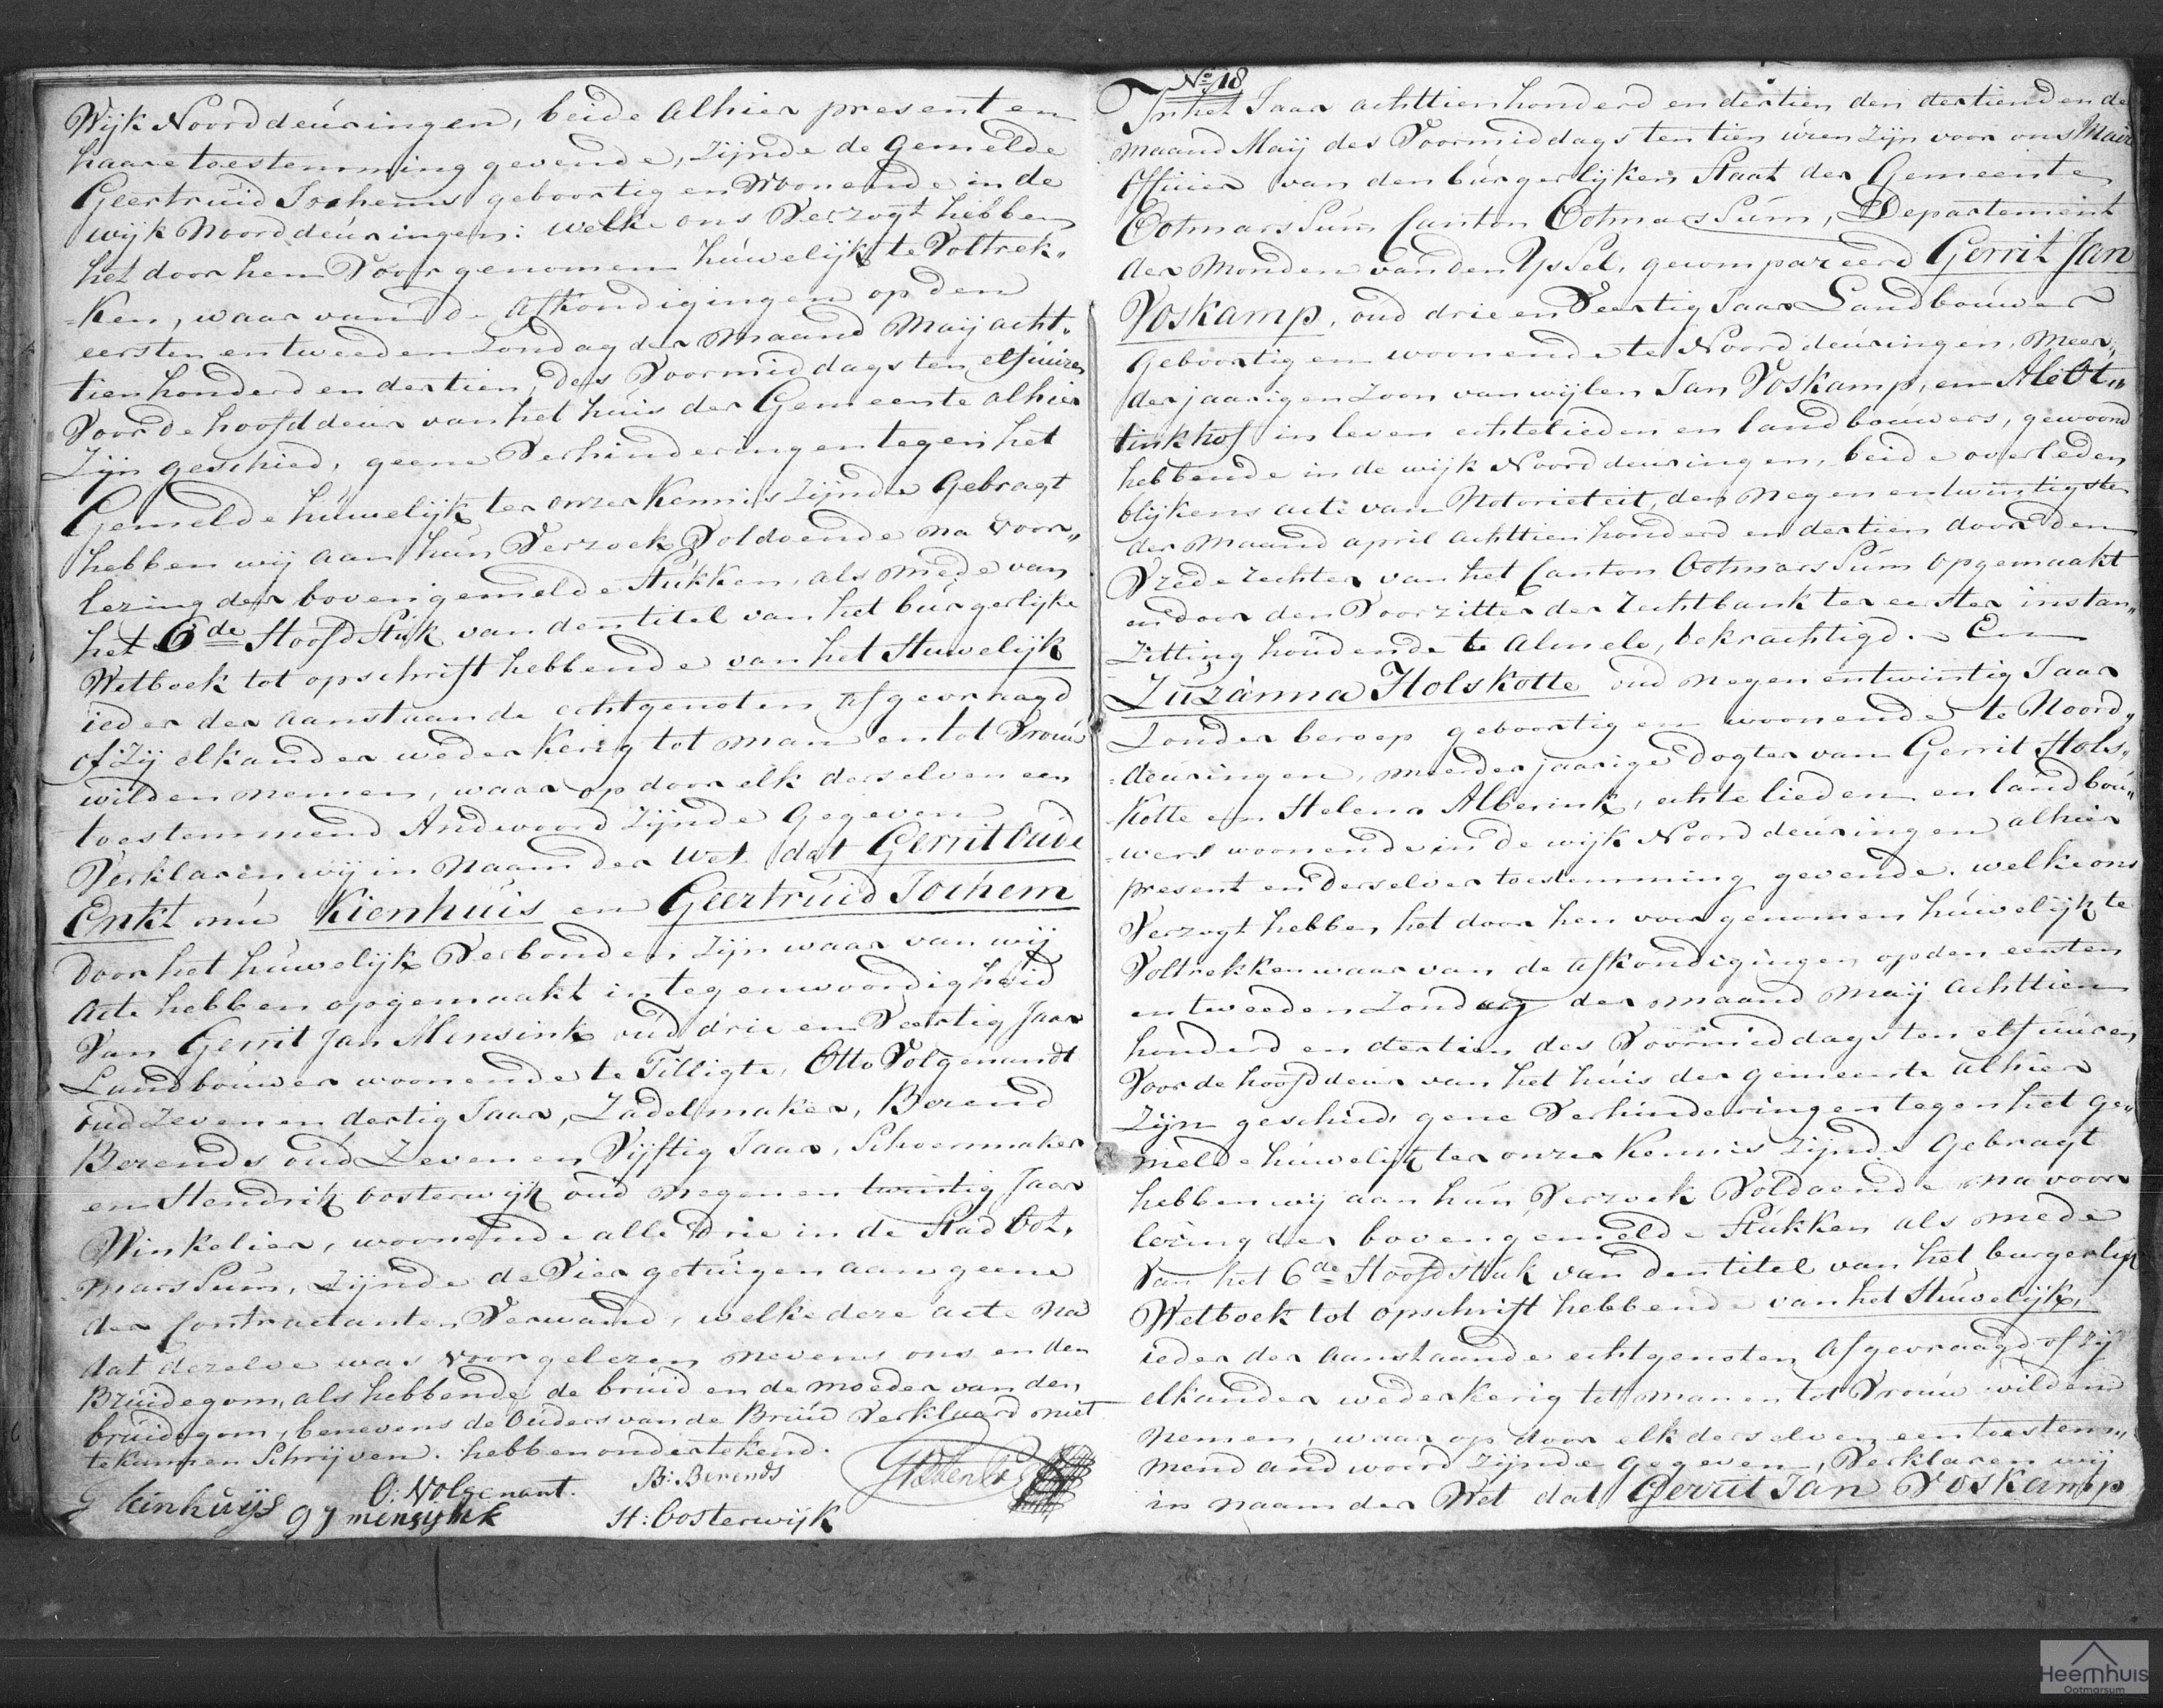 Wijk Noorddeuringen, beide alhier present en
haare toestemming gevende, zijnde de Gemelde
Geertruid Jochems geboortig en Woonende in de
wijk Noorddeuringen: welke ons Verzogt hebben
het door hen Voorgenomen huwelijk te Voltrek„
„ken, waar van de Afkondigingen op den
eersten en tweeden Zondag der maand Maij acht„
tienhonderd en dertien, des Voormiddags ten elf uuren
Voor de hoofddeur van het huis der Gemeente alhier
Zijn geschied, geene Verhinderingen tegen het
Gemelde huwelijk ter onzer Kennis zijnde Gebragt
hebben wij aan hun Verzoek Voldoende na voor„
lezing der bovengemelde Stukken, als mede van
het 6de Hoofdstuk van den titel van het burgerlijke
Wetboek tot opschrift hebbende van het Huwelijk
ieder der aanstaande echtgenoten Afgevraagd
of Zij elkander wederkerig tot man en tot Vrouw
wilden nemen, waar op door elk derselven een
toestemmend Andwoord Zijnde Gegeven
Verklaren wij in Naam der Wet dat Gerrit Oude
Enkt nu Kienhuis en Geertruid Jochem
Door het huwelijk Verbonden Zijn waar van wij
Acte hebben opgemaakt in tegenwoordigheid
Van Gerrit Jan Mensink oud drie en Veertig Jaar
Landbouwer woonende te Tilligte, Otto Volgenandt
oud Zeven en dertig Jaar, Zadelmaker, Berend
Berends oud Zeven en Vijftig Jaar, Schoenmaker
en Hendrik Oosterwijk oud negen en twintig Jaar
Winkelier, woonende alle drie in de Stad Oot„
marssum, Zijnde de Vier getuigen aan geene
der Contractanten Verwand, welke deze acte na
dat dezelve was Voorgelezen nevens ons en den
Bruidegom, als hebbende de bruid en de moeder van den
bruidegom, benevens de Ouders van de Bruid Verklaard niet
te kunnen Schrijven. hebben ondertekend.
G kinhuijs O: Volgenant. B: Berends
g j minsijnk H: Oosterwijk
No. 18
In het Jaar achttienhonderd en dertien den dertienden de
maand Maij des Voormiddags ten tien uren zijn voor ons Maire
Officier van den burgerlijken Staat der Gemeente
Ootmarssum Canton Ootmarssum, Departement
der Monden van den Yssel, gecompareerd Gerrit Jan
Voskamp, oud drie en Veertig Jaar Landbouwer
Geboortig en woonende te Noorddeuringen, Meer„
derjaarigen Zoon van wijlen Jan Voskamp, en Ale Ot„
tinkhof in leven echtelieden en landbouwers, gewoond
hebbende in de wijk Noorddeuringen, beide overleden
blijkens acte van Notorieteit, den negen en twintigsten
der Maand april achttienhonderd en dertien door den
Vrederechter van het Canton Ootmarssum opgemaakt
en door den Voorzitter der Rechtbank ter eerster instan„
Zitting houdende te Almelo, bekrachtigd. — En
Zuzanna Holskotte oud negen en twintig Jaar
Zonder beroep geboortig en woonende te Noord„
„deuringen, meerderjaarige Dogter van Gerrit Hols„
Kotte en Helena Alberink, echtelieden en landbou„
„wers woonende in de wijk Noorddeuringen alhier
present en derselver toestemming gevende. welke ons
Verzogt hebben het door hen voorgenomen huwelijk te
Voltrekken waar van de afkondigingen op den eersten
en tweeden Zondag der maand Maij Achttien
honderd en dertien des Voormiddags ten elf uuren
Voor de hoofddeur van het huis der gemeente alhier
Zijn geschied, gene Verhinderingen tegen het ge„
melde huwelijk ter onzer Kennis Zijnde Gebragt
hebben wij aan hun Verzoek Voldoende na voor
lezing der bovengemelde Stukken als mede
Van het 6de Hoofdstuk van den titel van het burgerlijk
Wetboek tot opschrift hebbende van het Huwelijk,
ieder der aanstaande echtgenoten Afgevraagd of zij
elkander wederkerig tot man en tot Vrouw wilden
Nemen, waar op door elk derselven een toestem„
mend andwoord zijnde gegeven, Verklaren wij
in naam der Wet dat Gerrit Jan Voskamp
Heemhuis
Ootmarsum